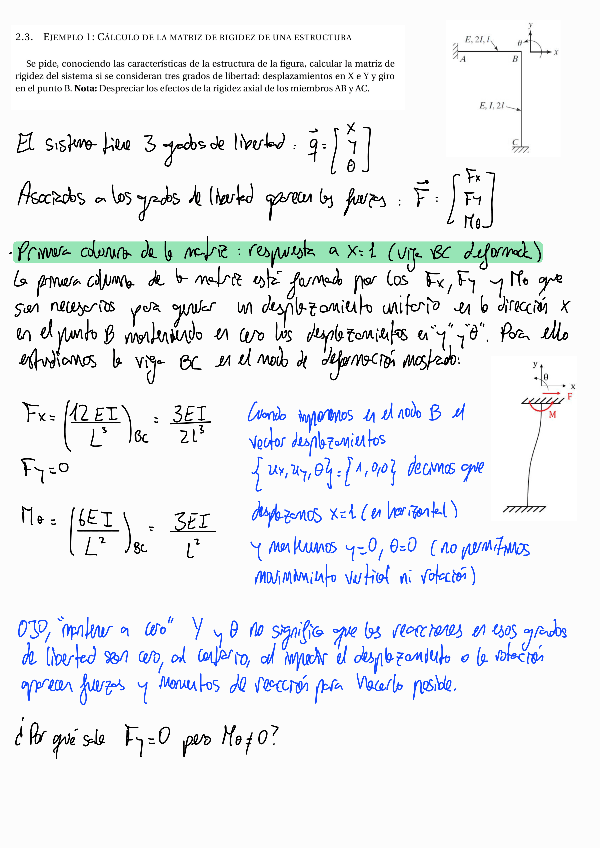 2.3. EJEMPLO 1: CÁLCULO DE LA MATRIZ DE RIGIDEZ DE UNA ESTRUCTURA
Se pide, conociendo las características de la estructura de la figura, calcular la matriz de
rigidez del sistema si se consideran tres grados de libertad: desplazamientos en X e Y y giro
en el punto B. Nota: Despreciar los efectos de la rigidez axial de los miembros AB y AC.
y
θ
x
E, 2I, l
A
B
E, I, 2l
C
El sistema tiene 3 grados de libertad: q⃗ = [x y θ]
Asociados a los grados de libertad aparecen las fuerzas: F⃗: [Fx Fy Mθ]
· Primera columna de la matriz: respuesta a x=1 (viga BC deformada)
La primera columna de la matriz está formada por los Fx, Fy y Mθ que
son necesarios para generar un desplazamiento unitario en la dirección x
en el punto B manteniendo en cero los desplazamientos en "y" y "θ". Para ello
estudiamos la viga BC en el modo de deformación mostrado:
y
θ
x
F
M
Fx = (12EI/L³)BC = 3EI/2L³
Fy = 0
Mθ = (6EI/L²)BC = 3EI/L²
Cuando imponemos en el nodo B el
vector desplazamientos
{ux, uy, θ} = {1, 0, 0} decimos que
desplazamos x=1 (en horizontal)
y mantenemos y=0, θ=0 (no permitimos
movimiento vertical ni rotación)
OJO, "mantener a cero" Y y θ no significa que las reacciones en esos grados
de libertad sean cero, al contrario, al impedir el desplazamiento o la rotación
aparecen fuerzas y momentos de reacción para hacerlo posible.
¿Por qué sale Fy=0 pero Mθ≠0?